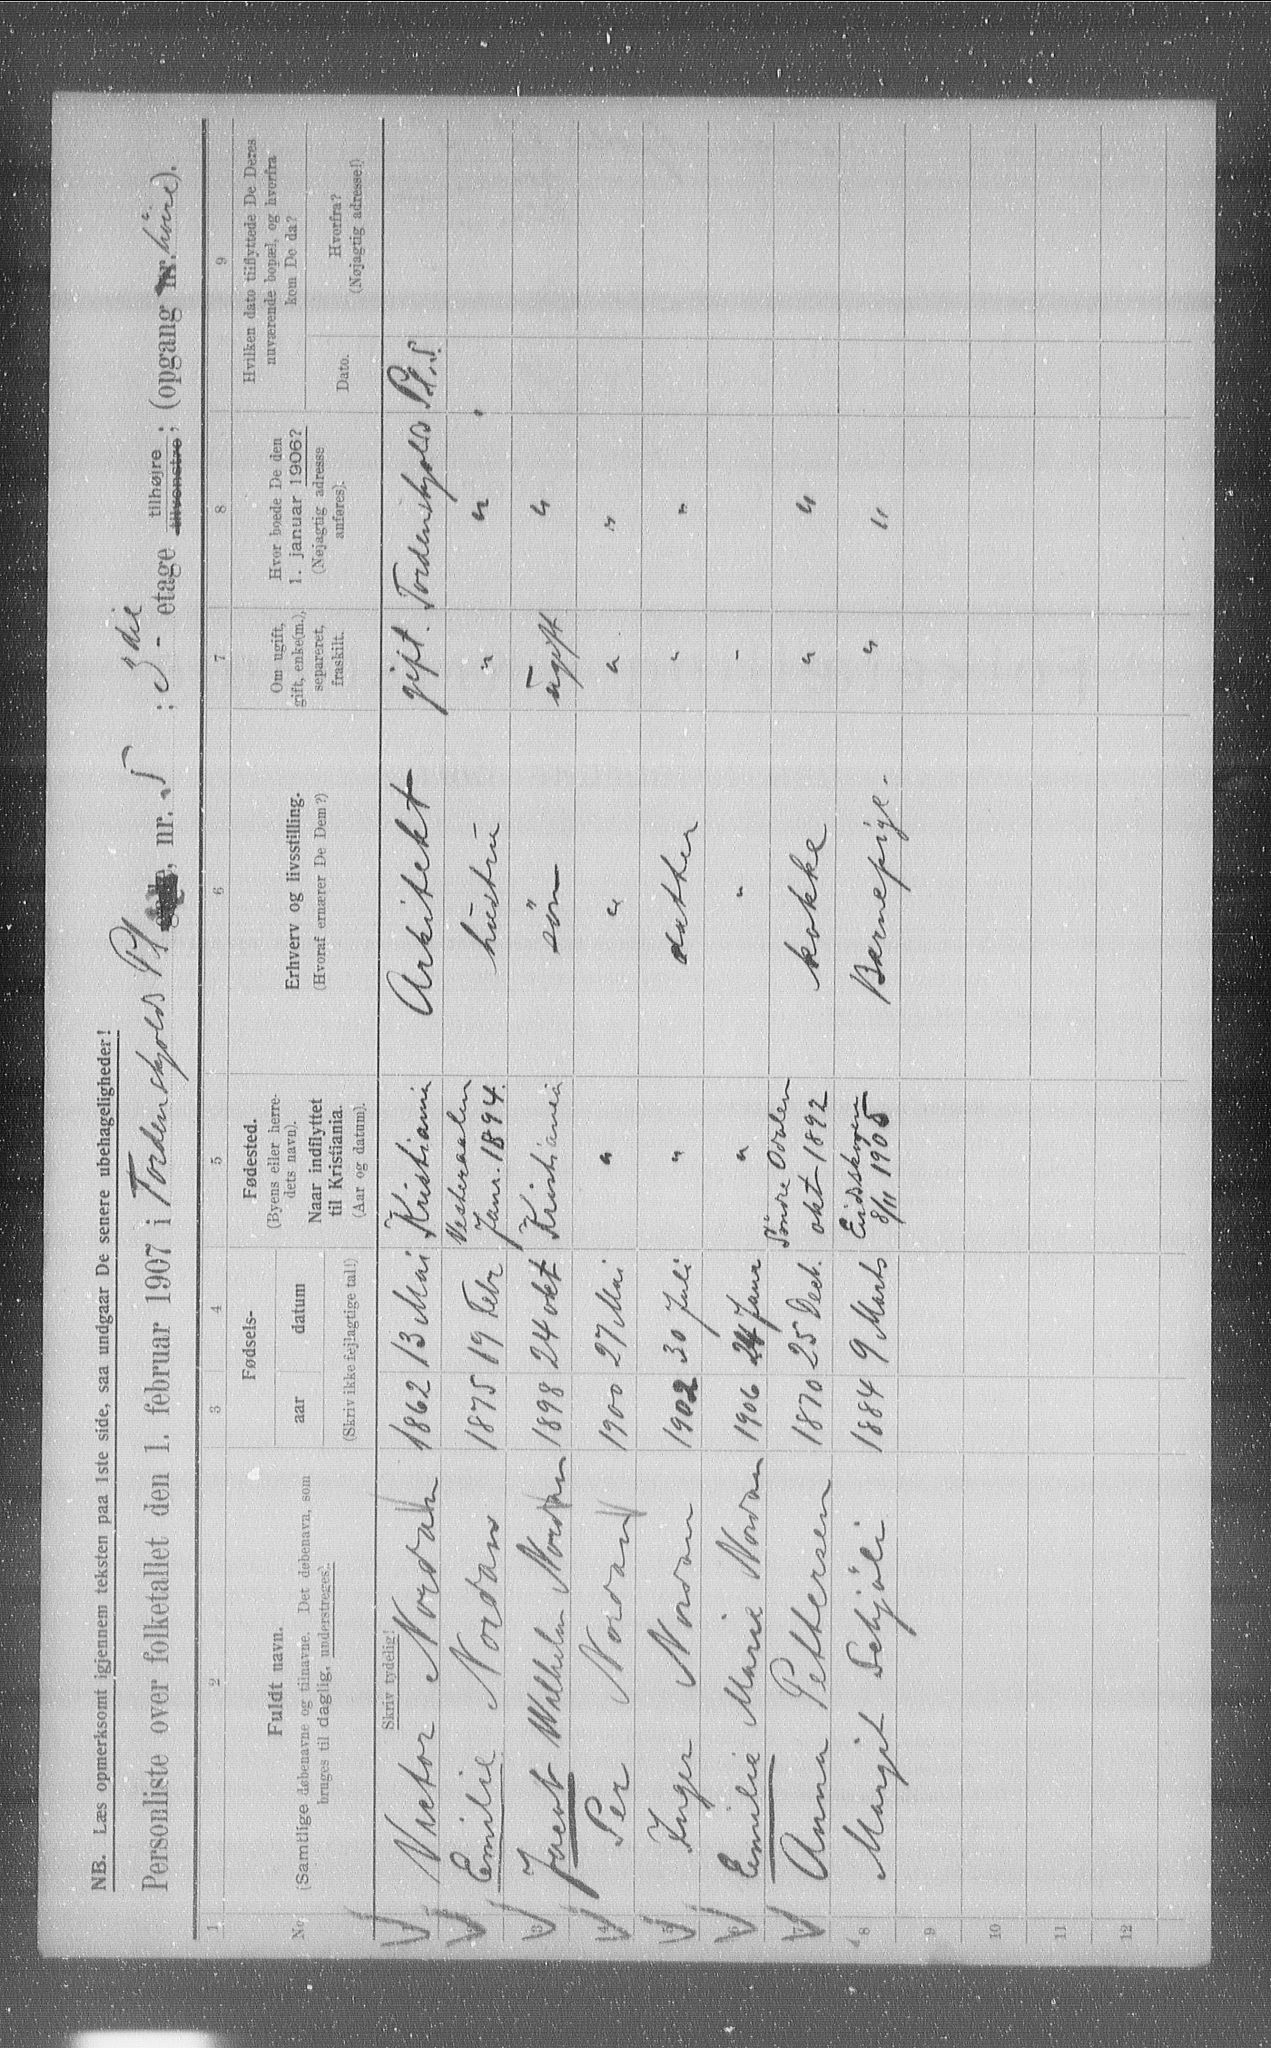 NB. Læs opmerksomt igjennem teksten paa 1ste side, saa undgaar De senere ubehageligheder!
Personliste over folketallet den 1. februar 1907 i Tordenskjolds Pl, nr. 5 ; 3die - etage tilhøjre tilvenstre; (opgang nr. høire).
1 2 3 4 5 6 7 8 9
Nr.
Fuldt navn.
(Samtlige døbenavne og tilnavne. Det døbenavn, som
bruges til daglig, understreges)
Fødsels-
aar datum
(Skriv ikke fejlagtige tal!)
Fødested.
(Byens eller herre-
dets navn).
Naar indflyttet
til Kristiania.
(Aar og datum).
Erhverv og livsstilling.
(Hvoraf ernærer De Dem?)
Om ugift,
gift, enke(m.),
separeret,
fraskilt.
Hvor boede De den
1. januar 1906?
(Nøjagtig adresse
anføres).
Hvilken dato tilflyttede De Deres
nuværende bopæl, og hvorfra
kom De da?
Dato.
Hvorfra?
(Nøjagtig adresse!)
Skriv tydelig!
1 Victor Nordan 1862 13 Mai Kristiania Arkitekt gift. Tordenskjolds Pl. 5
2 Emilie Nordan 1875 19 Febr Vesteraalen Janr. 1894. hustru " " "
3 Jacob Wilhelm Nordan 1898 24 okt Kristiania søn ugift "
4 Per Nordan 1900 27 Mai " " " "
5 Inger Nordan 1902 30 Juli " datter " "
6 Emilie Marie Nordan 1906 24 Janr " " -
7 Anna Pettersen 1870 25 Dech. Søndre Odalen okt 1892 kokke " "
8 Margit Schjöli 1884 9 Marts Eidsskogen 8/11 1905 Barnepige. " "
9
10
11
12